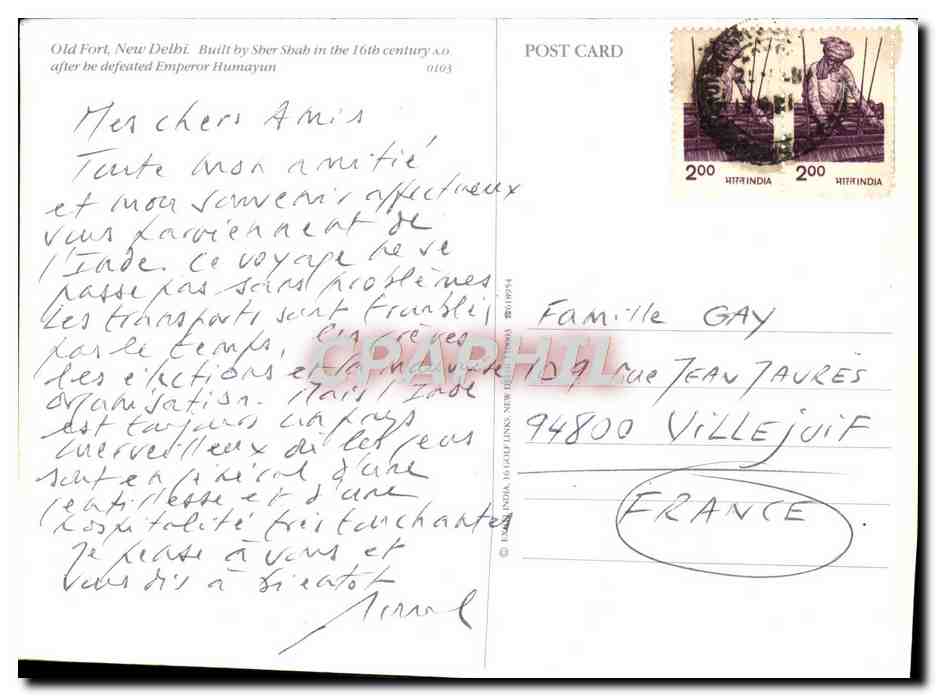 Old Fort, New Delhi. Built by Sher Shah in the 16th century A.D.
after he defeated Emperor Humayun 0103
Mes chers Amis
Toute mon amitié
et mon souvenir affectueux
vous parviennent de
l'Inde. Ce voyage ne se
passe pas sans problèmes
les transports sont troublés
par le temps, les grèves
les élections et la mauvaise
organisation. Mais l'Inde
est toujours un pays
merveilleux où les gens
sont en général d'une
gentillesse et d'une
hospitalité très touchantes
Je pense à vous et
vous dis à bientôt
POST CARD
2.00 भारत INDIA
2.00 भारत INDIA
Famille GAY
109 rue JEAN JAURÈS
94800 VILLEJUIF
FRANCE
INDIA, 16 GOLF LINKS, NEW DELHI
CPAPHIL